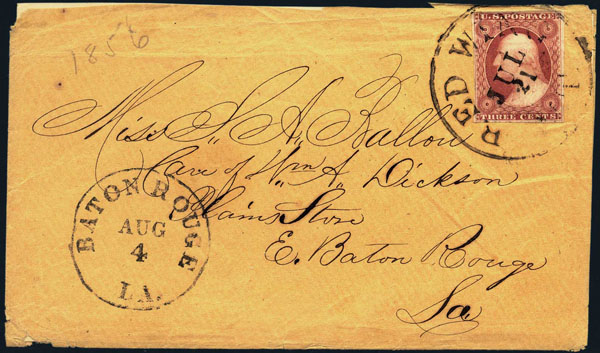 1856
U.S. POSTAGE
THREE CENTS
RED W
JUL
21
Miss S. A. Ballou
Care of Wm A. Dickson
Plains Store
E. Baton Rouge
La
BATON ROUGE
AUG
4
LA.